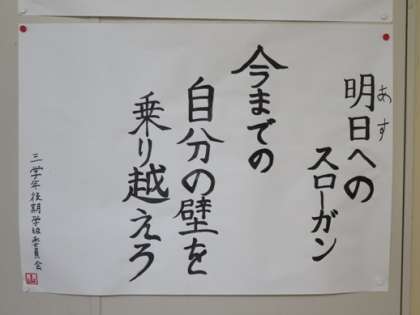 明日へのスローガン
あす
今までの
自分の壁を
乗り越えろ
三学年後期学級委員会